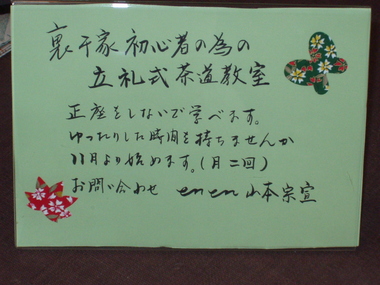 裏千家初心者の為の
立礼式茶道教室
正座をしないで学べます。
ゆったりした時間を持ちませんか
11月より始めます。(月二回)
お問い合わせ enen 山本宗宣